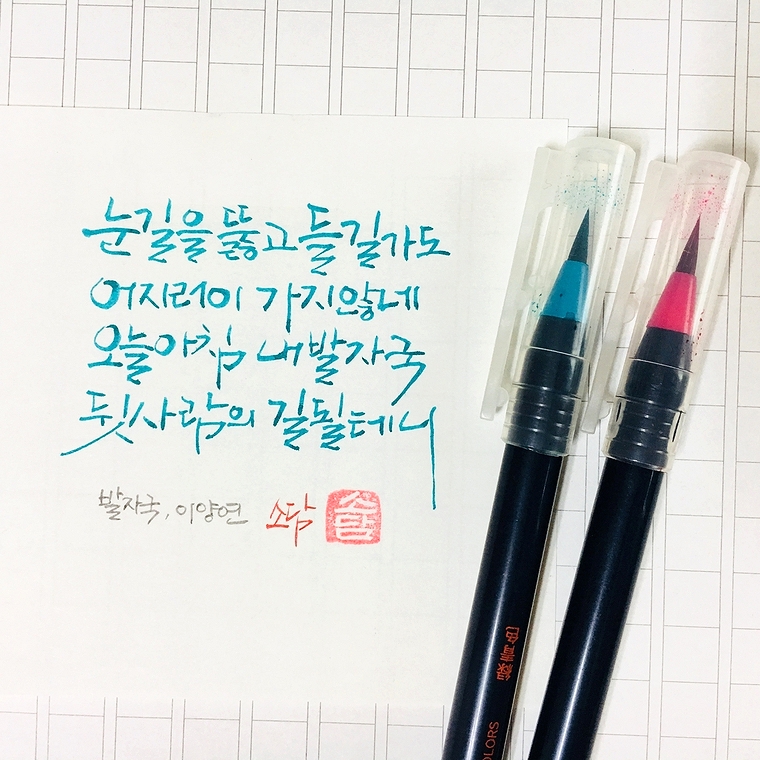 눈길을 뚫고 들길가도
어지러이 가지않네
오늘아침 내발자국
뒷사람의 길될테니
발자국, 이양연 소담
소담
緑青色
OLORS